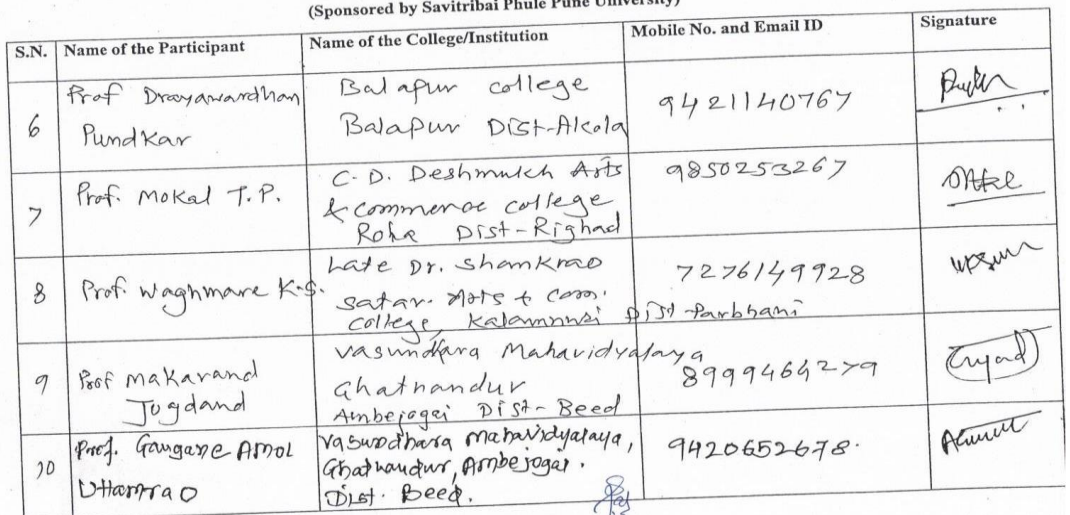 (Sponsored by Savitribai Phule Pune University)
S.N. Name of the Participant Name of the College/Institution Mobile No. and Email ID Signature
6 Prof Drayawardhan Pundkar Balapur college Balapur Dist-Akola 9421140767
7 Prof. Mokal T.P. C.D. Deshmukh Arts & commerce college Roha Dist-Righad 9850253267
8 Prof. Waghmare K.S. Late Dr. Shankrao Satav. Arts & Com. College, Kalamnuri Dist-Parbhani 7276149928
9 Prof Makarand Jogdand Vasundhara Mahavidyalaya Ghatnandur Ambejogai Dist-Beed 8999464279
10 Prof. Gangane Amol Uttamrao Vasundhara Mahavidyalaya, Ghatnandur, Ambejogai. Dist. Beed. 9420652678.